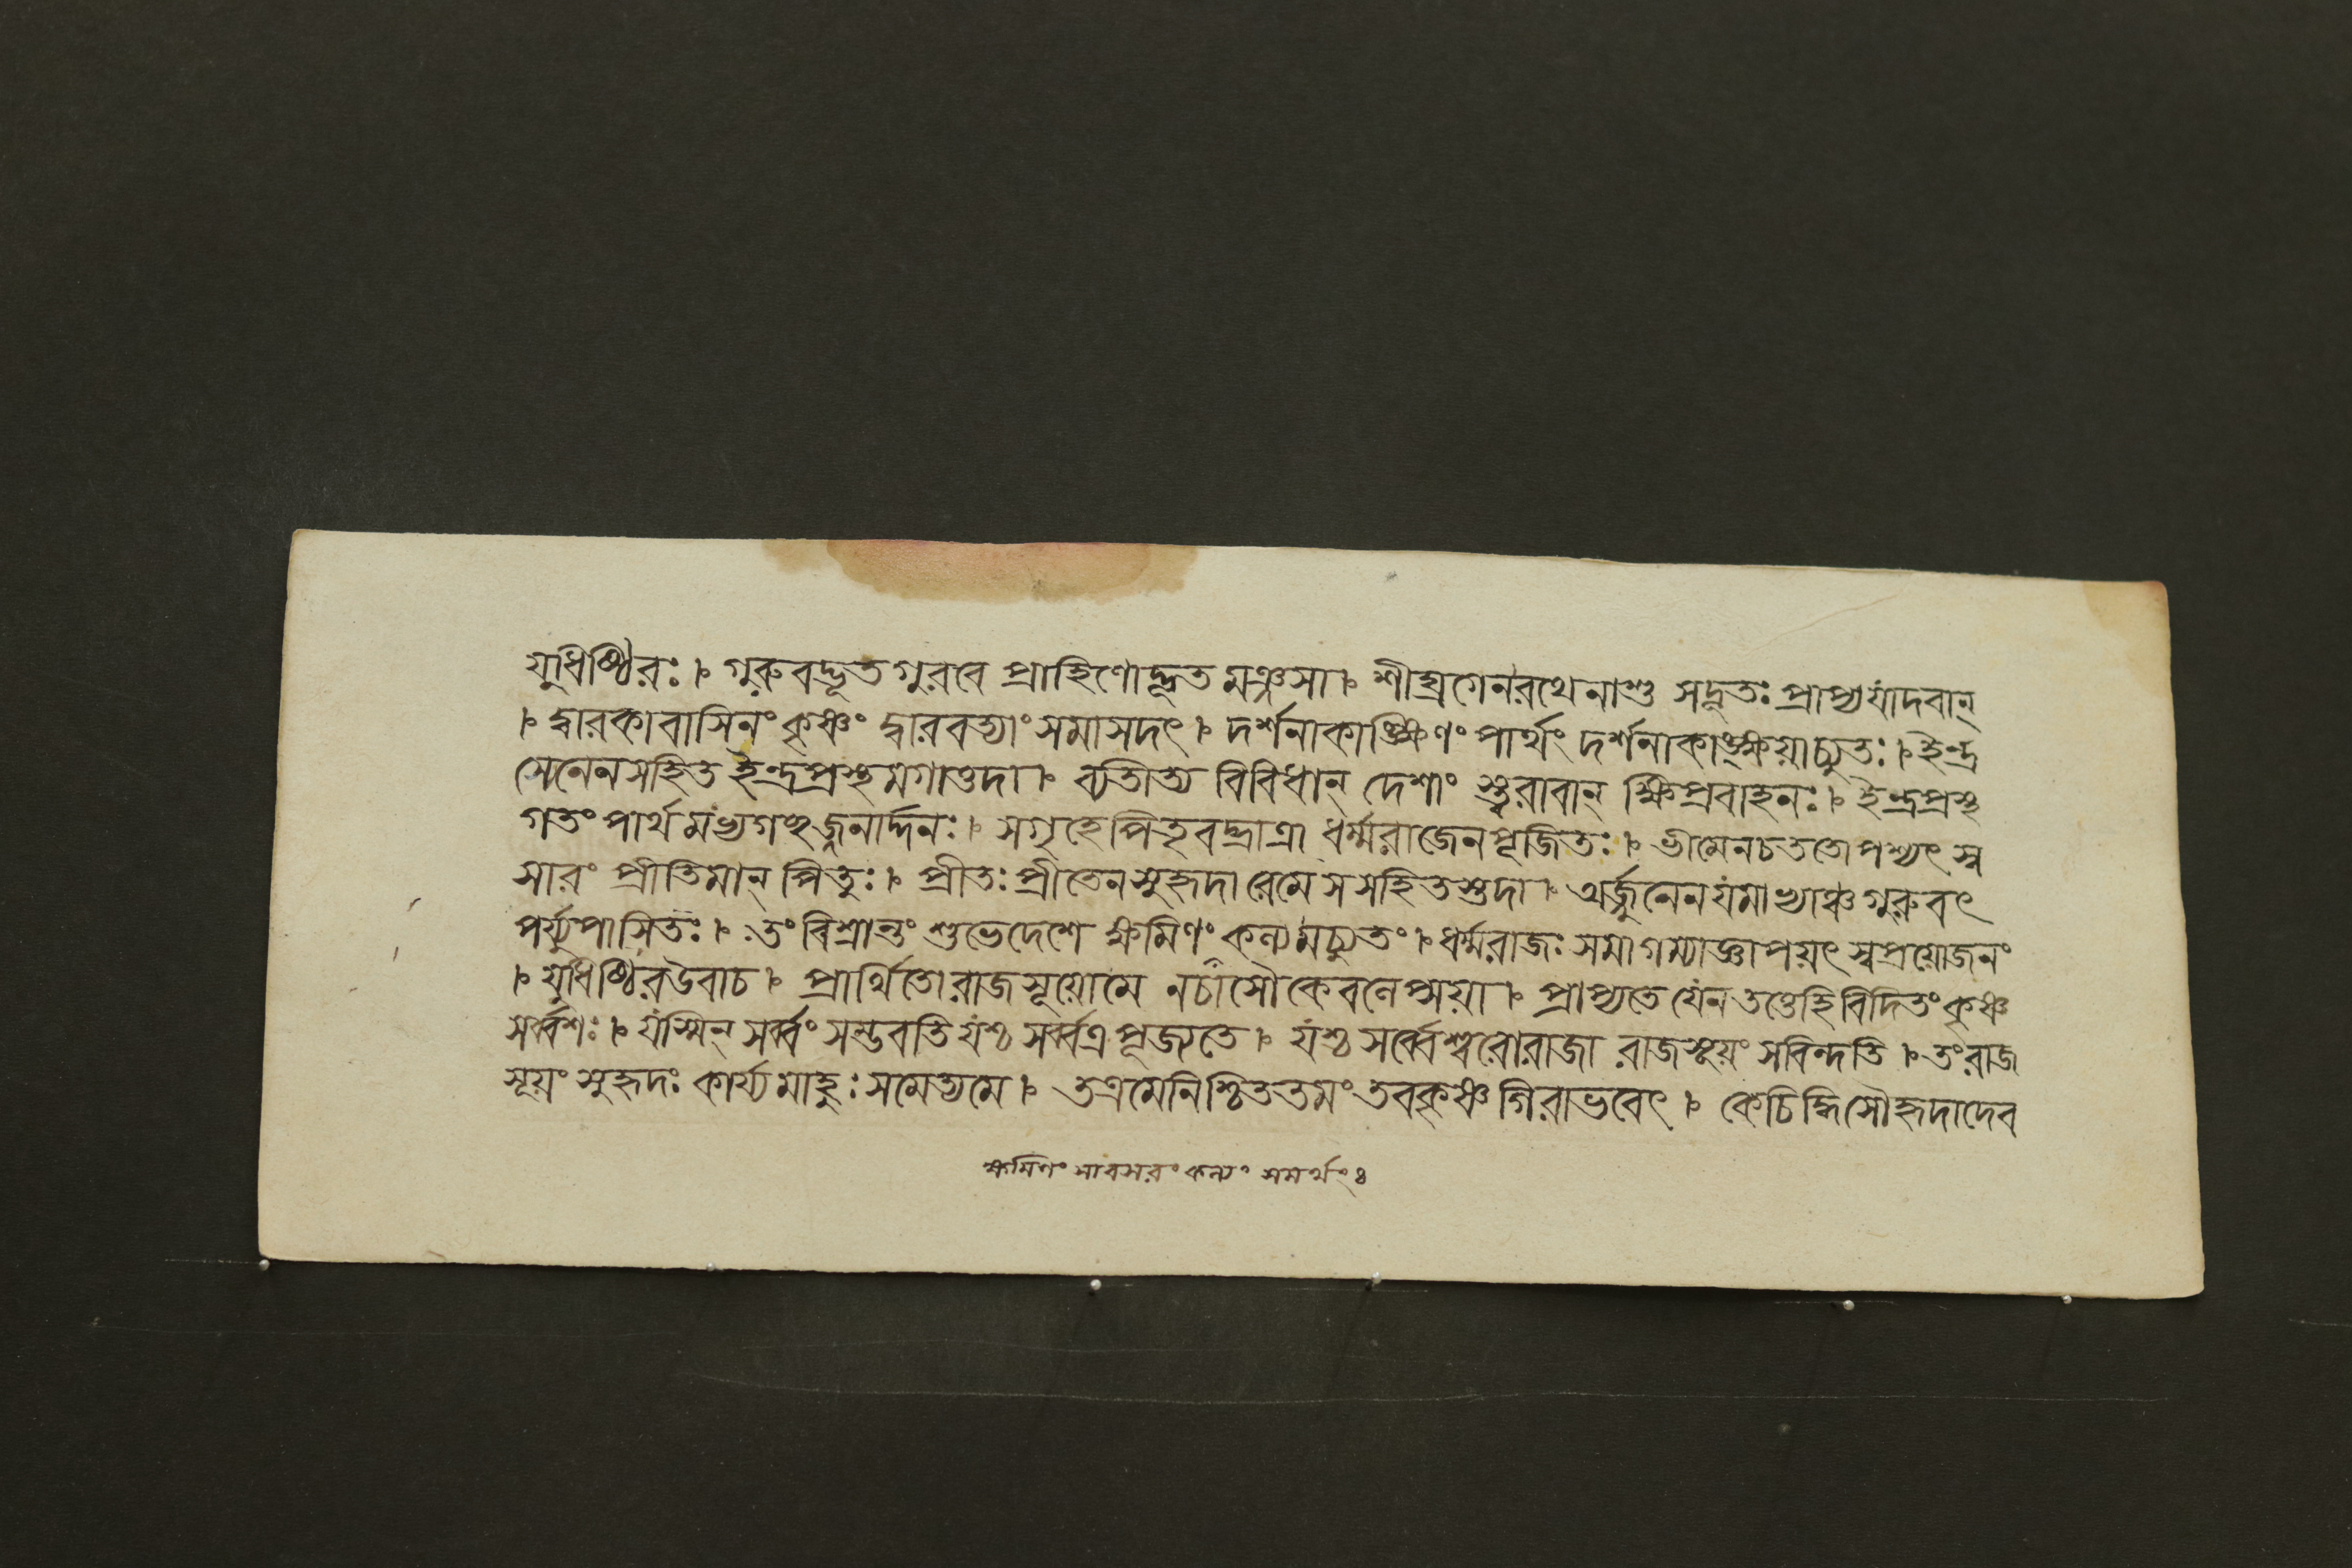 যুধিষ্ঠিরঃ। গুরুবদ্ভূতগুরবে প্রাহিণোদ্দূত মঞ্জসা। শীঘ্রগেনরথেনাশু সদূতঃ প্রাপ্যযাদবান্
। দ্বারকাবাসিনং কৃষ্ণং দ্বারবত্যাং সমাসদৎ। দর্শনাকাঙ্ক্ষিণং পার্থং দর্শনাকাঙ্ক্ষয়াচ্যুতঃ। ইন্দ্র
সেনেনসহিত ইন্দ্রপ্রস্থ মগাত্তদা। ব্যতীত্য বিবিধান্ দেশাং স্ত্বরাবান্ ক্ষিপ্রবাহনঃ। ইন্দ্রপ্রস্থ
গতং পার্থ মভ্যগচ্ছজ্জনার্দ্দনঃ। সগৃহেপিতৃবদ্ভ্রাত্রা ধর্ম্মরাজেনপূজিতঃ। ভীমেনচততোপশ্যৎ স্ব
সারং প্রীতিমান্ পিতুঃ। প্রীতঃ প্রীতেনসুহৃদা রেমে সসহিতস্তদা। অর্জ্জুনেনযমাভ্যাঞ্চ গুরুবৎ
পর্য্যুপাসিতঃ। তং বিশ্রান্তং শুভেদেশে ক্ষমিণং কল্যমচ্যুতং। ধর্ম্মরাজঃ সমাগম্যাজ্ঞাপয়ৎ স্বপ্রয়োজনং
। যুধিষ্ঠিরউবাচ। প্রার্থিতোরাজসূয়োমে নচাসৌকেবলেপ্সয়া। প্রাপ্যতে যেনতত্তেহি বিদিতং কৃষ্ণ
সর্ব্বশঃ। যস্মিন্ সর্ব্বং সম্ভবতি যশ্চ সর্ব্বত্রপূজ্যতে। যশ্চ সর্ব্বেশ্বরোরাজা রাজসূয়ং সবিন্দতি। তংরাজ
সূয়ং সুহৃদঃ কার্য্যমাহুঃ সমেত্যমে। তত্রমেনিশ্চিততমং তবকৃষ্ণ গিরাভবেৎ। কেচিদ্ধিসৌহৃদাদেব
ক্ষমিণং সাবসরং কল্যং সমর্থং